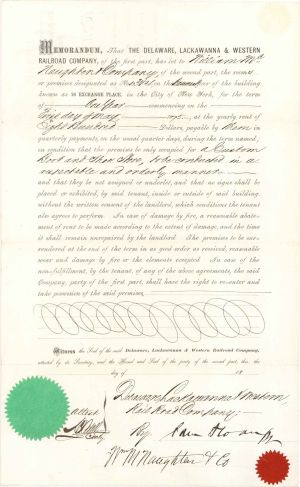 MEMORANDUM, That THE DELAWARE, LACKAWANNA & WESTERN
RAILROAD COMPANY, of the first part, has let to William Mc
Naughten & Company of the second part, the rooms
or premises designated as No on the floor of the building
known as 26 EXCHANGE PLACE, in the City of New York, for the term
of One Year commencing on the
First day of May 187 , at the yearly rent of
Eight Hundred Dollars, payable by them in
quarterly payments, on the usual quarter days, during the term named,
on condition that the premises be only occupied for a Custom
Boot and Shoe Store, to be conducted in a
respectable and orderly manner
and that they be not assigned or underlet, and that no signs shall be
placed or exhibited, by said tenant, inside or outside of said building,
without the written consent of the landlord, which conditions the tenant
also agrees to perform. In case of damage by fire, a reasonable abate-
ment of rent to be made according to the extent of damage, and the time
it shall remain unrepaired by the landlord. The premises to be sur-
rendered at the end of the term in as good order as received, reasonable
wear and damage by fire or the elements excepted. In case of the
non-fulfillment, by the tenant, of any of the above agreements, the said
Company, party of the first part, shall have the right to re-enter and
take possession of the said premises
Witness the Seal of the said Delaware, Lackawanna & Western Railroad Company,
attested by its Secretary, and the Hand and Seal of the party of the second part, this the
day of 18
Delaware Lackawanna & Western
Attest Rail Road Company
By Sam Sloan
Wm McNaughten & Co